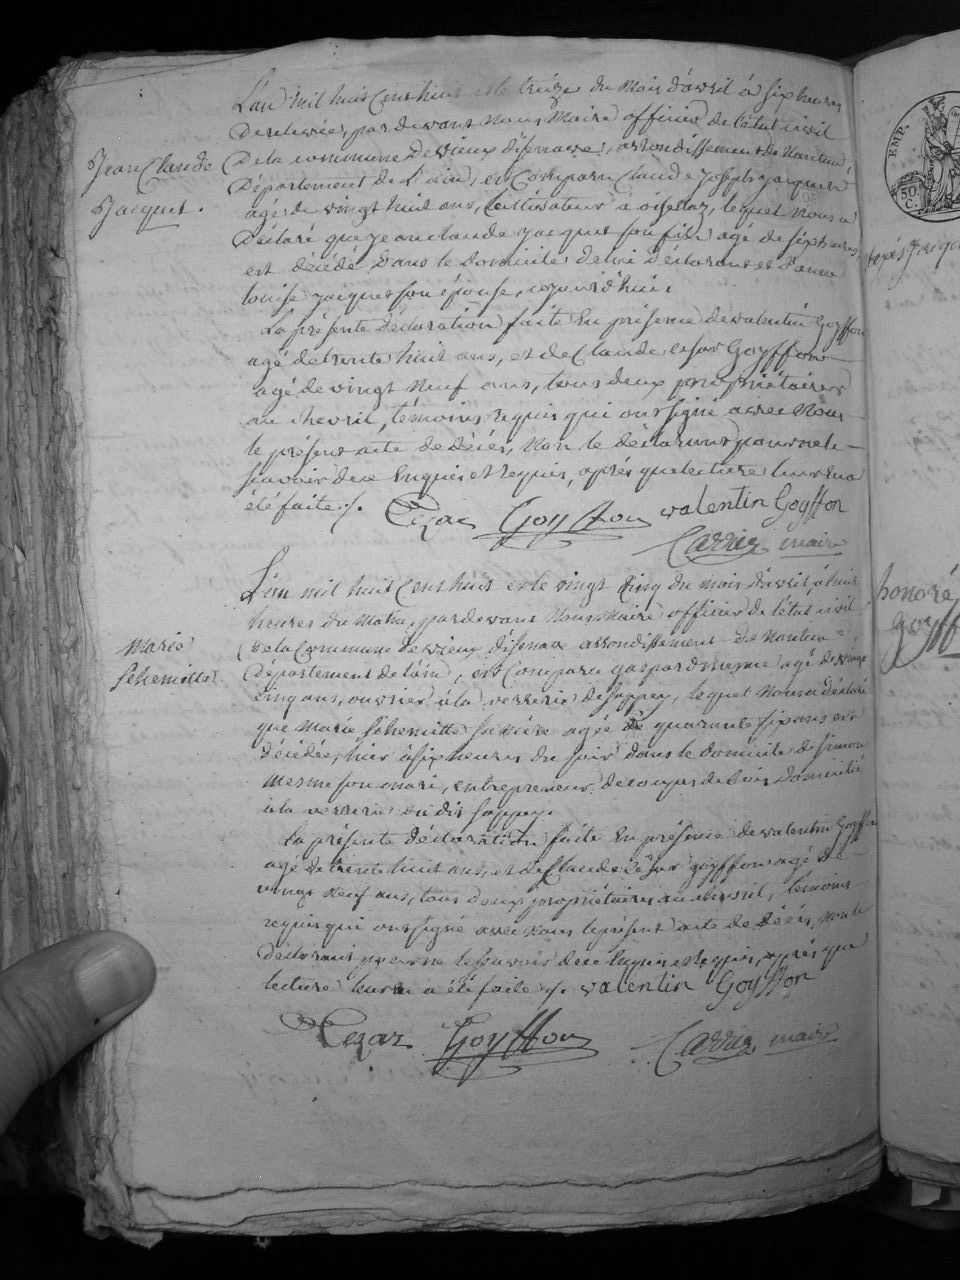 L'an mil huit cent huit et le treize du mois d'avril à six heures
de relevée, par devant nous maire officier de l'état civil
de la commune de vieux d'isenave, arrondissement de Nantua,
Jean Claude
Jacquet.
Département de l'ain, est comparu Claude Joseph jacquet
agé de vingt huit ans, Cultivateur à oisellaz, lequel nous a
Déclaré que jean claude jacquet son fils agé de six heures
est décédé dans le domicile de lui déclarant et d'anne
louise jacquet son épouse, cejourd'hui.
La présente déclaration faite en présence de valentin Goyffon
agé de trente huit ans, et de Claude César Goyffon
agé de vingt neuf ans, tous deux propriétaires
au chevril, témoins requis qui ont signé avec nous
le présent acte de décès, non le déclarant pour ne le
sçavoir de ce enquis et requis, après que lecture leur en a
été faite ./.
Cezar Goyffon valentin Goyffon
Carrier maire
L'an mil huit cent huit et le vingt cinq du mois d'avril, à huit
heures du matin, par devant nous maire officier de l'état civil
de la Commune de vieux d'isenave arrondissement de Nantua,
marie
Schemitte.
Département de l'ain, est comparu gaspard mesme agé de vingt
cinq ans, ouvrier à la verrerie de sappey, lequel nous a déclaré
que marie Schemitte sa mère agée de quarante six ans est
décédée, hier à six heures du soir dans le domicile de simon
mesme son mari, entrepreneur de coupes de bois domicilié
à la verrerie du dit sappey.
La présente déclaration faite en présence de valentin Goyffon
agé de trente huit ans, et de Claude César goyffon agé de
vingt neuf ans, tous deux propriétaires au chevril, témoins
requis qui ont signé avec nous le présent acte de décès, non le
déclarant pour ne le sçavoir de ce enquis et requis, après que
lecture leur en a été faite ./. valentin Goyffon
Cezar Goyffon Carrier maire
EMP.
50
C.
honoré